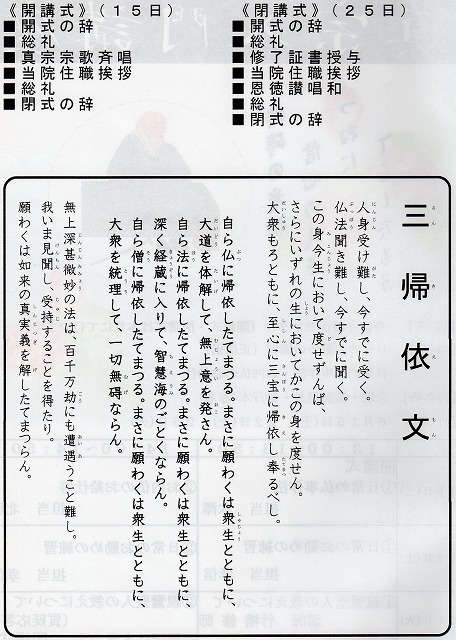 《開講式》(15日)
■開式の辞
■総礼
■真宗宗歌斉唱
■当院住職挨拶
■総礼
■閉式の辞
《閉講式》(25日)
■開式の辞
■総礼
■修了証書授与
■当院住職挨拶
■恩徳讃唱和
■総礼
■閉式の辞
三帰依文
人身受け難し、今すでに受く。
仏法聞き難し、今すでに聞く。
この身今生において度せずんば、
さらにいずれの生においてかこの身を度せん。
大衆もろともに、至心に三宝に帰依し奉るべし。
自ら仏に帰依したてまつる。まさに願わくは衆生とともに、
大道を体解して、無上意を発さん。
自ら法に帰依したてまつる。まさに願わくは衆生とともに、
深く経蔵に入りて、智慧海のごとくならん。
自ら僧に帰依したてまつる。まさに願わくは衆生とともに、
大衆を統理して、一切無碍ならん。
無上深甚微妙の法は、百千万劫にも遭遇うこと難し。
我いま見聞し、受持することを得たり。
願わくは如来の真実義を解したてまつらん。